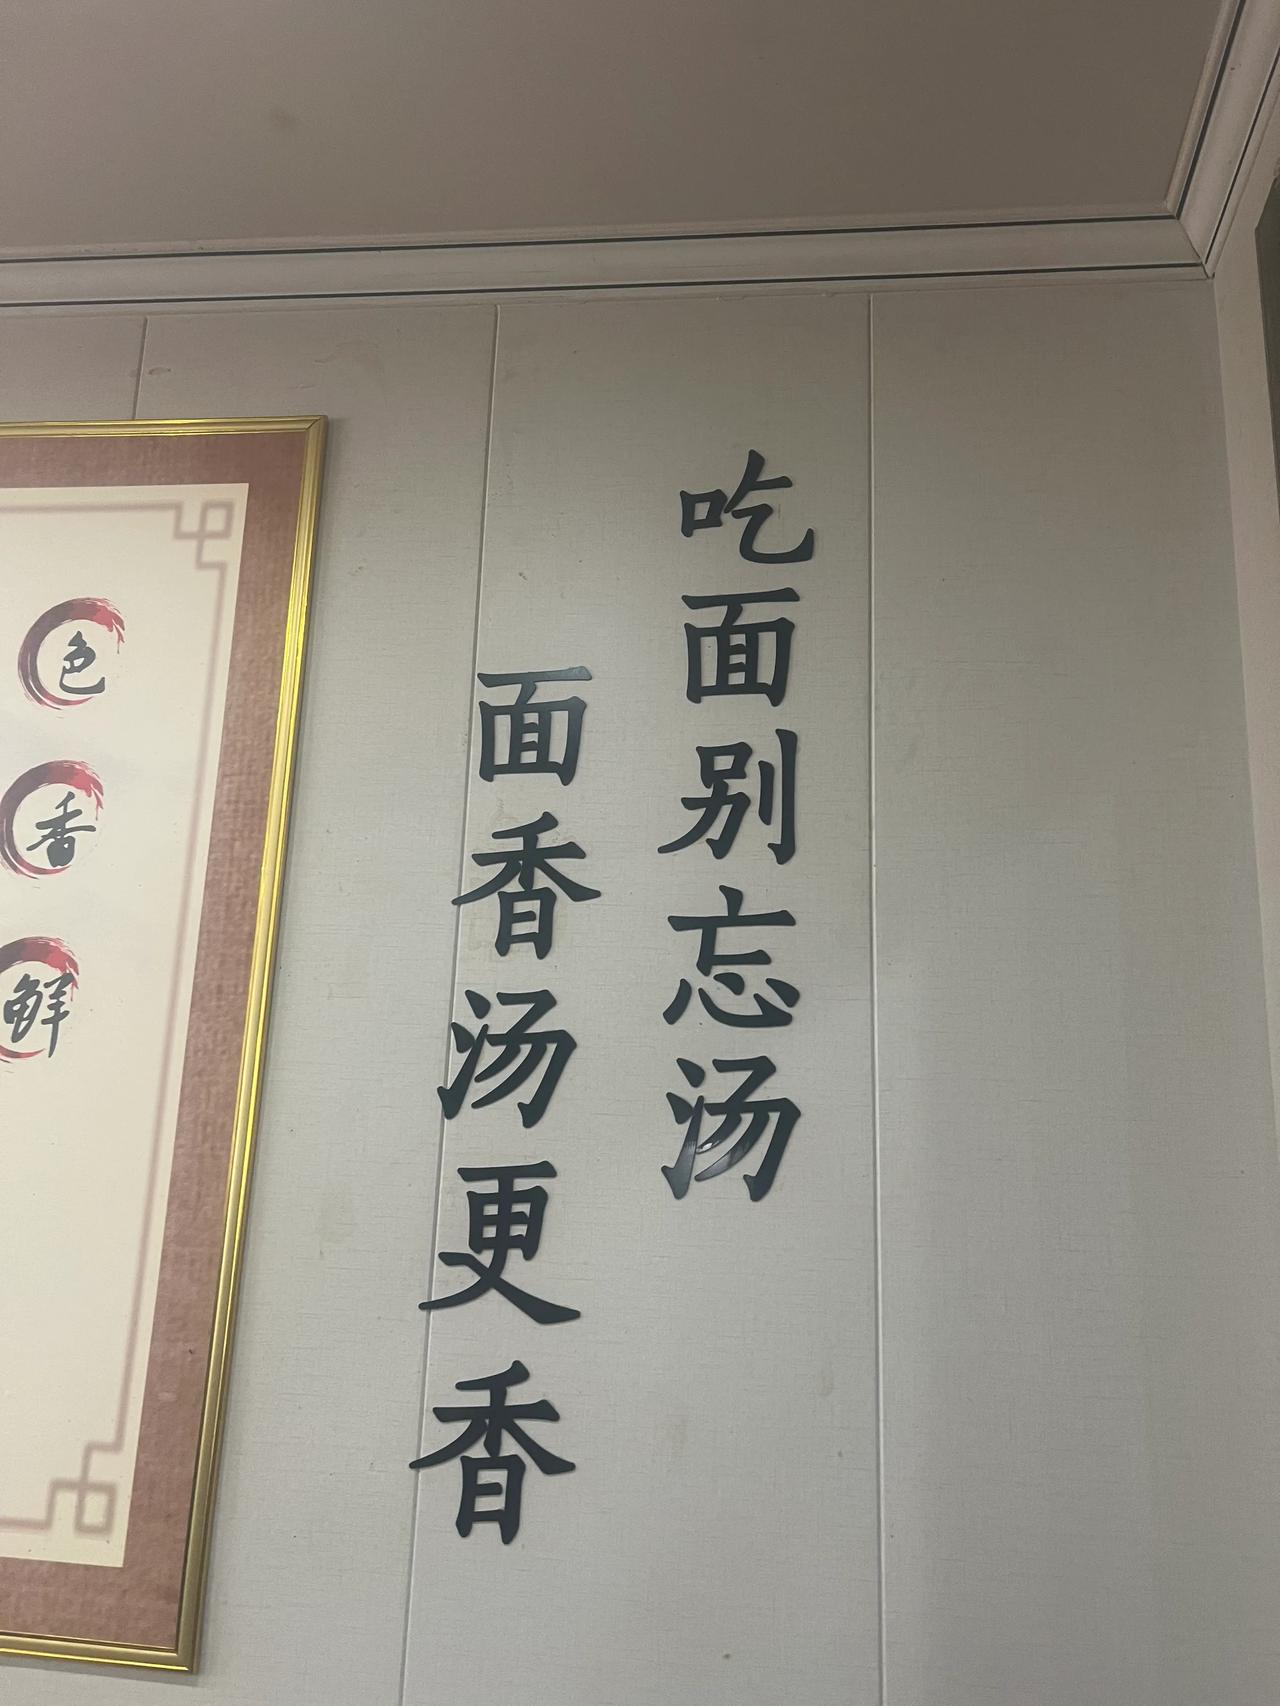 吃面别忘汤
面香汤更香
色
香
鲜